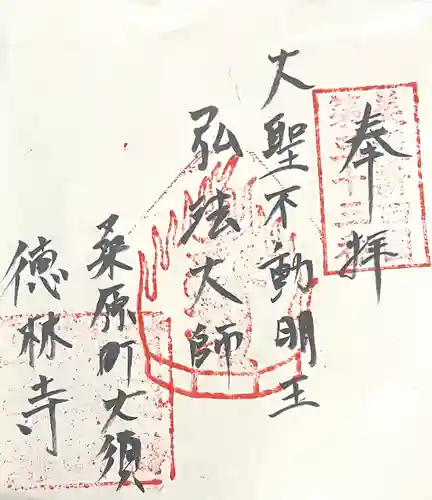 奉拝
大聖不動明王
弘法大師
桑原町大須
徳林寺